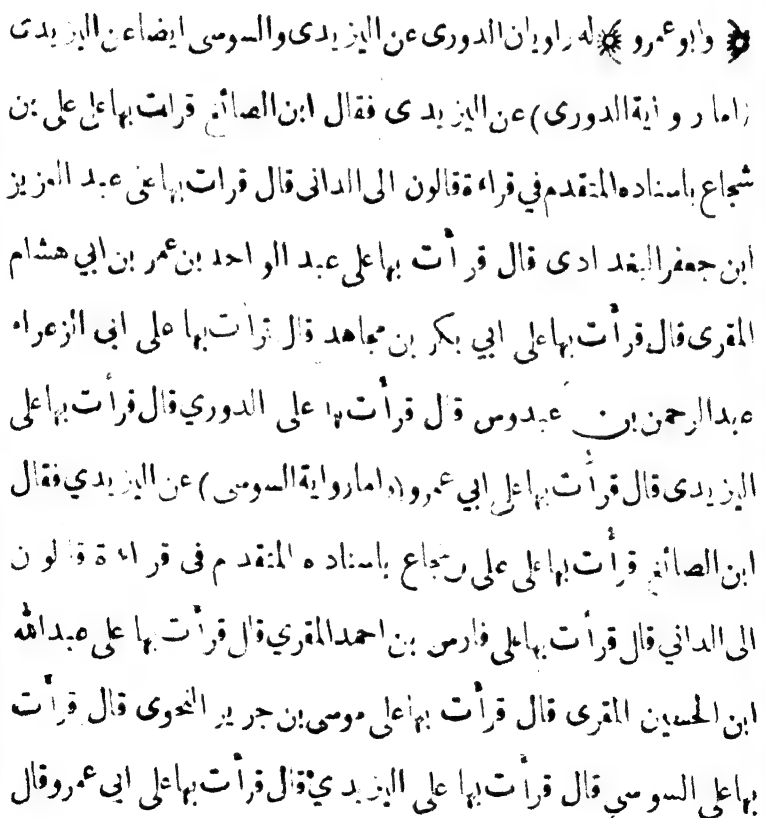 ﴿ وابو عمرو ﴾ له راويان الدورى عن اليزيدى والسوسى ايضا عن اليزيدى
(اما رواية الدورى) عن اليزيدى فقال ابن الصائغ قرات بها على على بن
شجاع باسناده المتقدم في قراءة قالون الى الدانى قال قرات بها على عبد العزيز
ابن جعفر البغدادى قال قرأت بها على عبد الواحد بن عمر بن ابي هشام
المقرى قال قرأت بها على ابي بكر بن مجاهد قال قرأت بها على ابى الزعراء
عبدالرحمن بن عبدوس قال قرأت بها على الدوري قال قرأت بها على
اليزيدى قال قرأت بها على ابي عمرو (واما رواية السوسى) عن اليزيدي فقال
ابن الصائغ قرأت بها على على بن شجاع باسناده المتقدم فى قراءة قالون
الى الداني قال قرأت بها على فارس بن احمد المقري قال قرأت بها على عبدالله
ابن الحسين المقرى قال قرأت بها على موسى بن جرير النحوى قال قرأت
بها على السوسي قال قرأت بها على اليزيدي قال قرأت بها على ابى عمرو قال